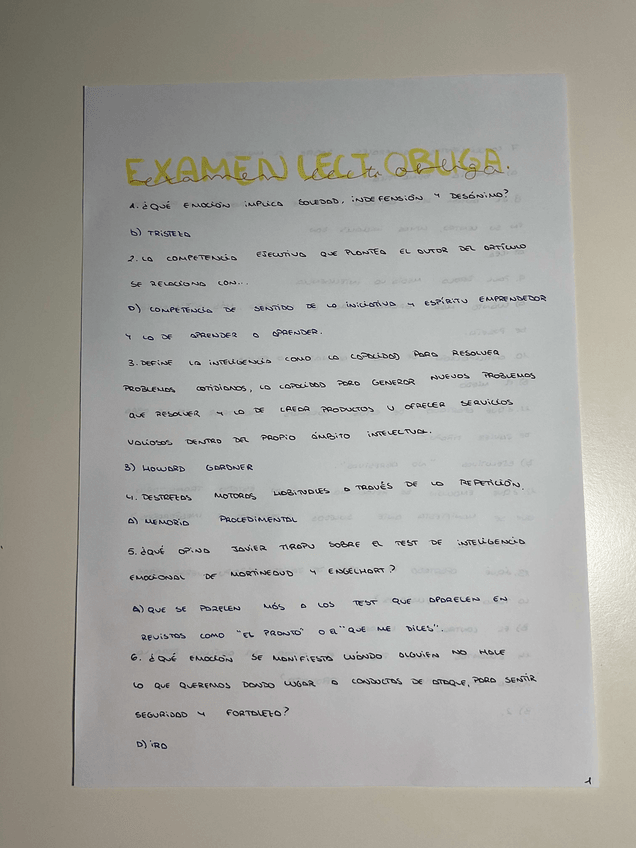 EXAMEN LECT. OBLIGA.
examen lect. obliga.
1. ¿QUÉ EMOCIÓN IMPLICA SOLEDAD, INDEFENSIÓN Y DESÁNIMO?
b) TRISTEZA
2. LA COMPETENCIA EJECUTIVA QUE PLANTEA EL AUTOR DEL ARTÍCULO
SE RELACIONA CON...
D) COMPETENCIA DE SENTIDO DE LA INICIATIVA Y ESPÍRITU EMPRENDEDOR
Y LA DE APRENDER A APRENDER.
3. DEFINE LA INTELIGENCIA COMO LA CAPACIDAD PARA RESOLVER
PROBLEMAS COTIDIANOS, LA CAPACIDAD PARA GENERAR NUEVOS PROBLEMAS
QUE RESOLVER Y LA DE CREAR PRODUCTOS U OFRECER SERVICIOS
VALIOSOS DENTRO DEL PROPIO ÁMBITO INTELECTUAL.
B) HOWARD GARDNER
4. DESTREZAS MOTORAS HABITUALES A TRAVÉS DE LA REPETICIÓN.
A) MEMORIA PROCEDIMENTAL
5. ¿QUÉ OPINA JAVIER TIRAPU SOBRE EL TEST DE INTELIGENCIA
EMOCIONAL DE MARTINEAUD Y ENGELHART?
A) QUE SE PARECEN MÁS A LOS TEST QUE APARECEN EN
REVISTAS COMO "EL PRONTO" O EL "QUE ME DICES".
6. ¿QUÉ EMOCIÓN SE MANIFIESTA CUÁNDO ALGUIEN NO HACE
LO QUE QUEREMOS DANDO LUGAR A CONDUCTAS DE ATAQUE, PARA SENTIR
SEGURIDAD Y FORTALEZA?
D) IRA
1